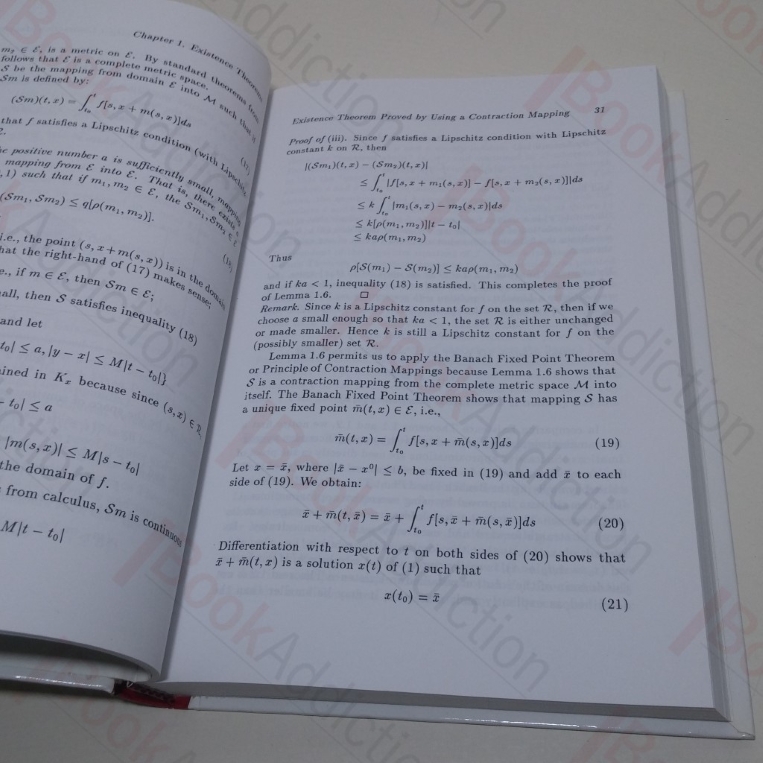 Chapter 1. Existence Theorems
m₂ ∈ ℰ, is a metric on ℰ. By standard theorems from
follows that ℰ is a complete metric space.
𝒮 be the mapping from domain ℰ into ℳ such that if
𝒮m is defined by:
(𝒮m)(t, x) = ∫_{t₀}^{t} f[s, x + m(s, x)]ds
that f satisfies a Lipschitz condition (with Lipschitz
positive number a is sufficiently small, mapping
mapping from ℰ into ℰ. That is, there exists
, 1) such that if m₁, m₂ ∈ ℰ, the 𝒮m₁, 𝒮m₂ ∈ ℰ
(𝒮m₁, 𝒮m₂) ≤ q[ρ(m₁, m₂)].
i.e., the point (s, x+m(s, x)) is in the domain
hat the right-hand of (17) makes sense;
e., if m ∈ ℰ, then 𝒮m ∈ ℰ;
all, then 𝒮 satisfies inequality (18)
and let
t₀| ≤ a, |y − x| ≤ M|t − t₀|}
ined in Kₓ because since (s, x) ∈ ℛ,
− t₀| ≤ a
|m(s, x)| ≤ M|s − t₀|
the domain of f.
from calculus, 𝒮m is continuous
M|t − t₀|
Existence Theorem Proved by Using a Contraction Mapping 31
Proof of (iii). Since f satisfies a Lipschitz condition with Lipschitz
constant k on ℛ, then
|(𝒮m₁)(t, x) − (𝒮m₂)(t, x)|
≤ ∫_{t₀}^{t} |f[s, x + m₁(s, x)] − f[s, x + m₂(s, x)]|ds
≤ k ∫_{t₀}^{t} |m₁(s, x) − m₂(s, x)|ds
≤ k[ρ(m₁, m₂)]|t − t₀|
≤ kaρ(m₁, m₂)
Thus
ρ[𝒮(m₁) − 𝒮(m₂)] ≤ kaρ(m₁, m₂)
and if ka < 1, inequality (18) is satisfied. This completes the proof
of Lemma 1.6. □
Remark. Since k is a Lipschitz constant for f on the set ℛ, then if we
choose a small enough so that ka < 1, the set ℛ is either unchanged
or made smaller. Hence k is still a Lipschitz constant for f on the
(possibly smaller) set ℛ.
Lemma 1.6 permits us to apply the Banach Fixed Point Theorem
or Principle of Contraction Mappings because Lemma 1.6 shows that
𝒮 is a contraction mapping from the complete metric space ℳ into
itself. The Banach Fixed Point Theorem shows that mapping 𝒮 has
a unique fixed point m̄(t, x) ∈ ℰ, i.e.,
m̄(t, x) = ∫_{t₀}^{t} f[s, x + m̄(s, x)]ds (19)
Let x = x̄, where |x̄ − x⁰| ≤ b, be fixed in (19) and add x̄ to each
side of (19). We obtain:
x̄ + m̄(t, x̄) = x̄ + ∫_{t₀}^{t} f[s, x̄ + m̄(s, x̄)]ds (20)
Differentiation with respect to t on both sides of (20) shows that
x̄ + m̄(t, x) is a solution x(t) of (1) such that
x(t₀) = x̄ (21)
BookAddiction